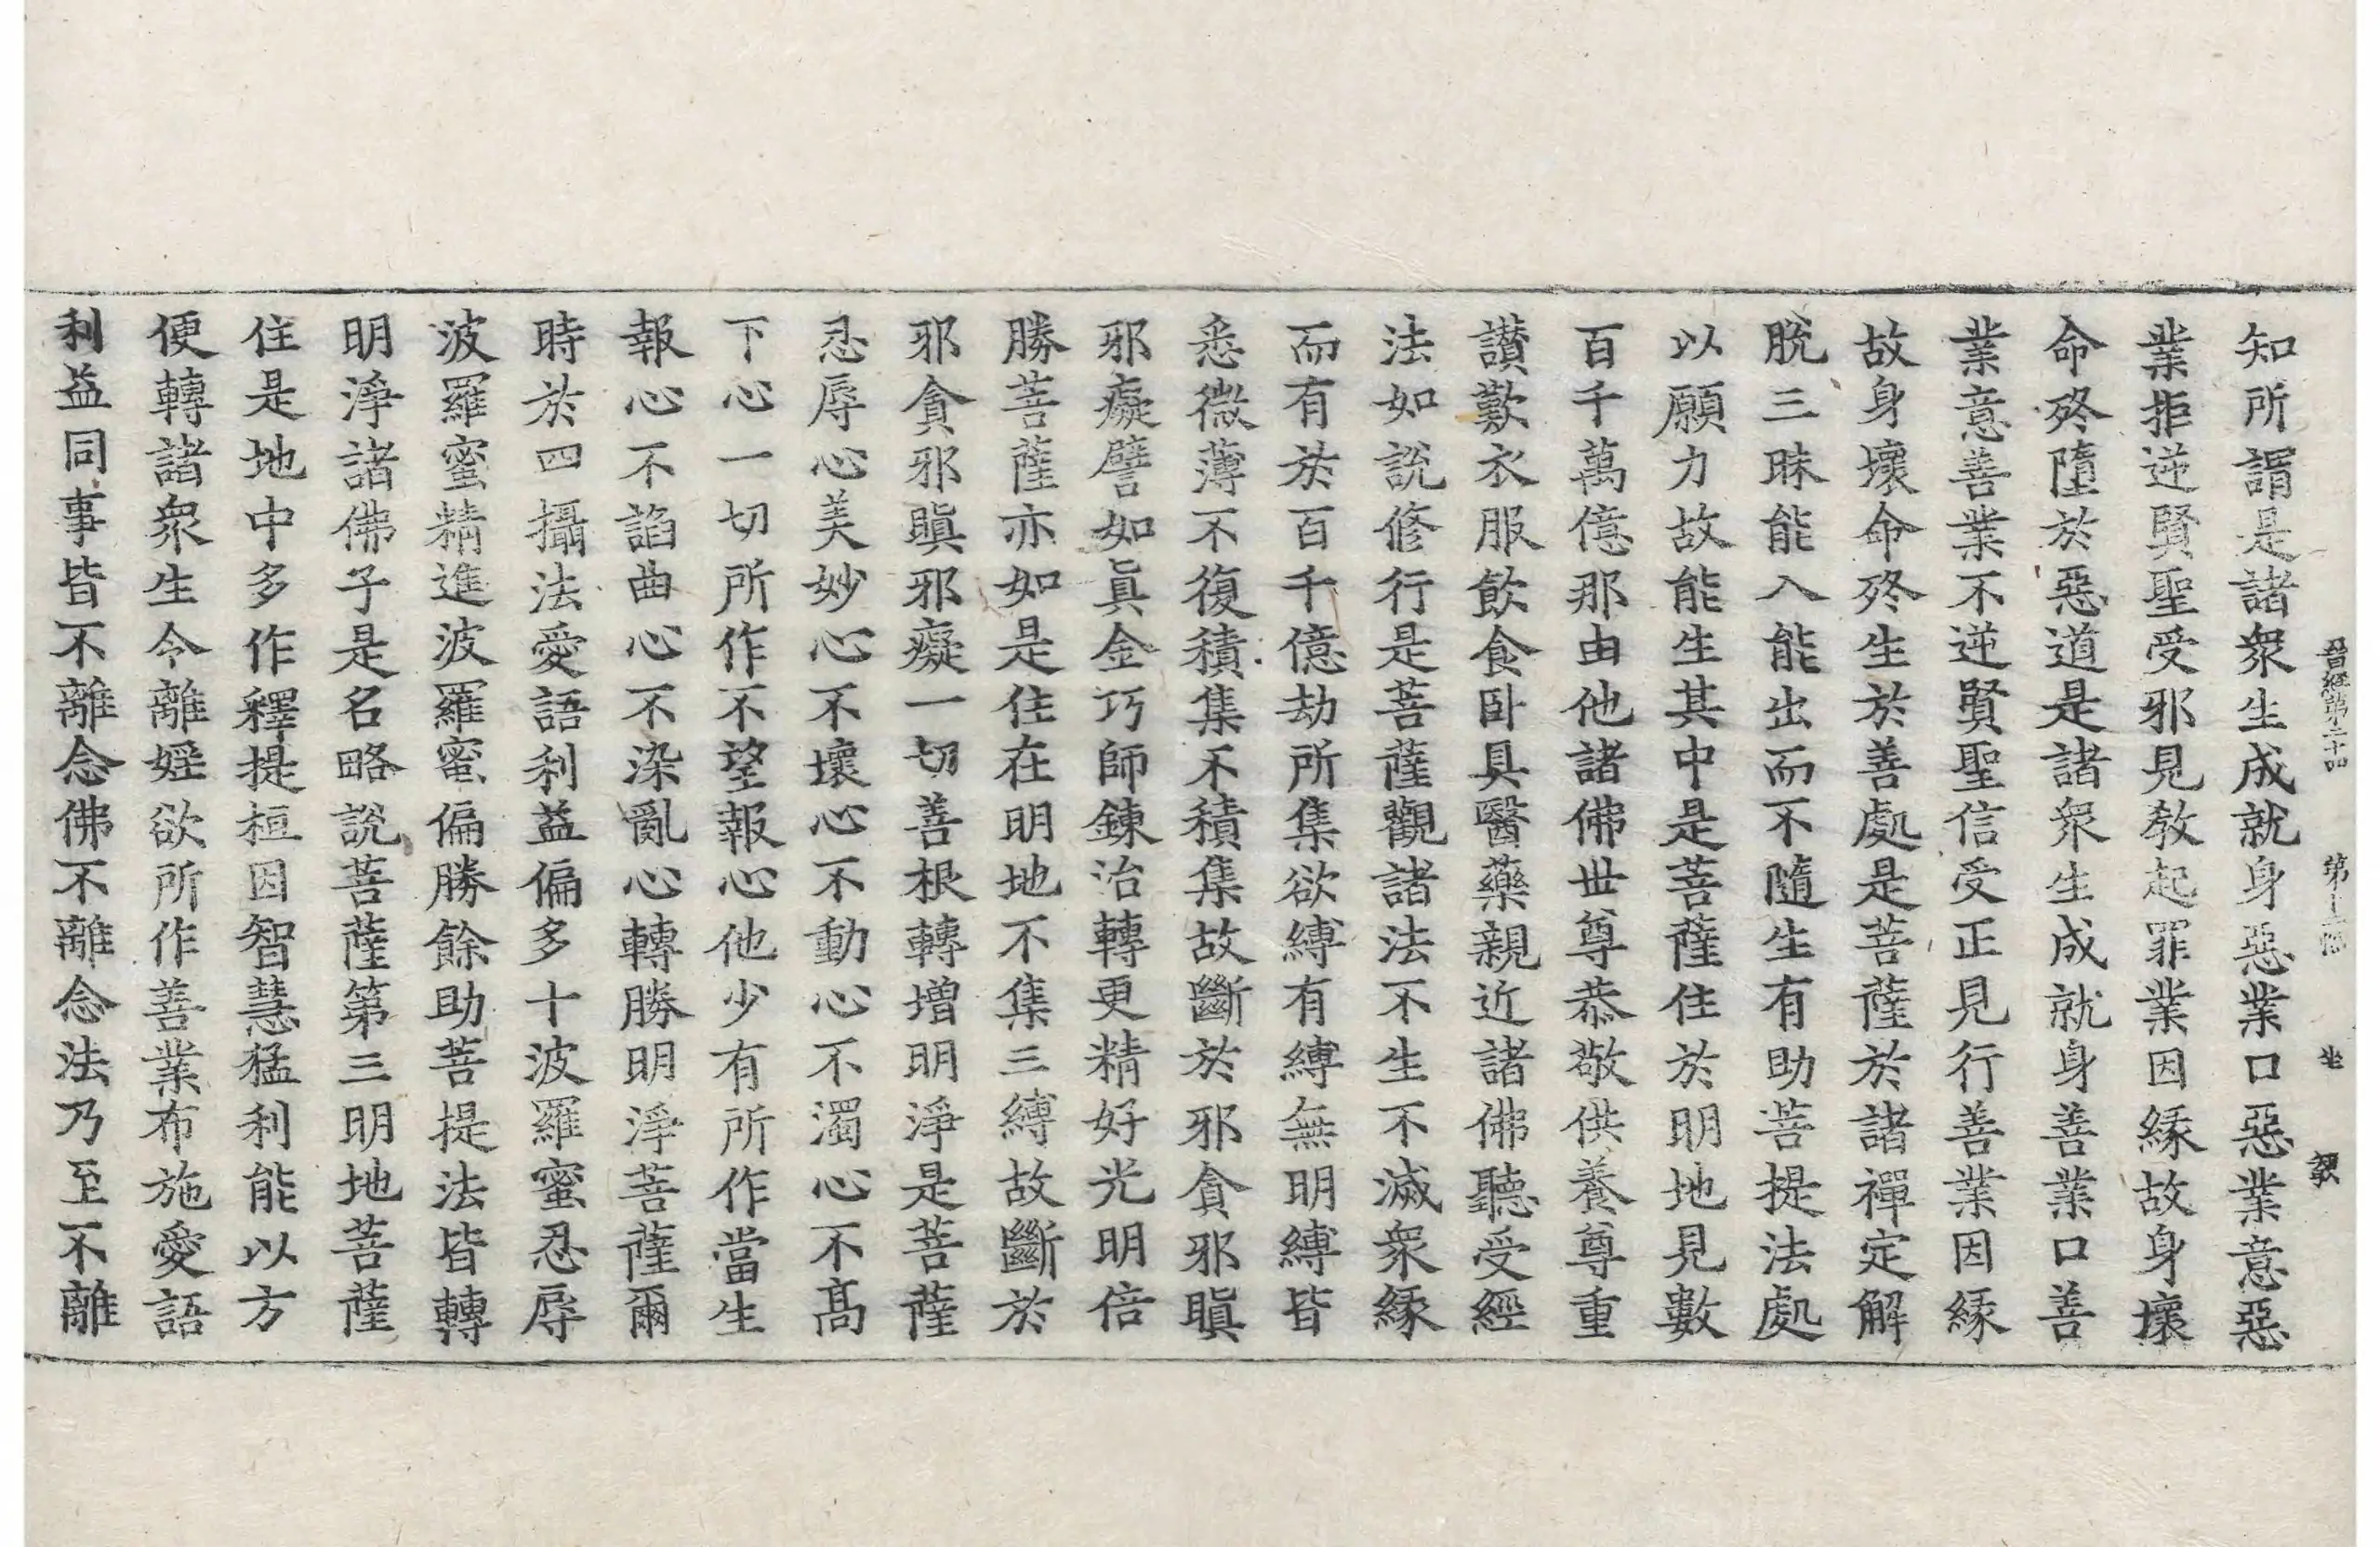 晉經第二十四 第十二張 坐 
知所謂是諸衆生成就身惡業口惡業意惡
業拒逆賢聖受邪見教起罪業因緣故身壞
命終墮於惡道是諸衆生成就身善業口善
業意善業不逆賢聖信受正見行善業因緣
故身壞命終生於善處是菩薩於諸禪定解
脫三昧能入能出而不隨生有助菩提法處
以願力故能生其中是菩薩住於明地見數
百千萬億那由他諸佛世尊恭敬供養尊重
讃歎衣服飲食卧具醫藥親近諸佛聽受經
法如說修行是菩薩觀諸法不生不滅衆緣
而有於百千億劫所集欲縛有縛無明縛皆
悉微薄不復積集不積集故斷於邪貪邪瞋
邪癡譬如眞金巧師鍊治轉更精好光明倍
勝菩薩亦如是住在明地不集三縛故斷於
邪貪邪瞋邪癡一切善根轉增明淨是菩薩
忍辱心美妙心不壞心不動心不濁心不高
下心一切所作不望報心他少有所作當生
報心不諂曲心不染亂心轉勝明淨菩薩爾
時於四攝法愛語利益偏多十波羅蜜忍辱
波羅蜜精進波羅蜜偏勝餘助菩提法皆轉
明淨諸佛子是名略說菩薩第三明地菩薩
住是地中多作釋提桓因智慧猛利能以方
便轉諸衆生令離婬欲所作善業布施愛語
利益同事皆不離念佛不離念法乃至不離